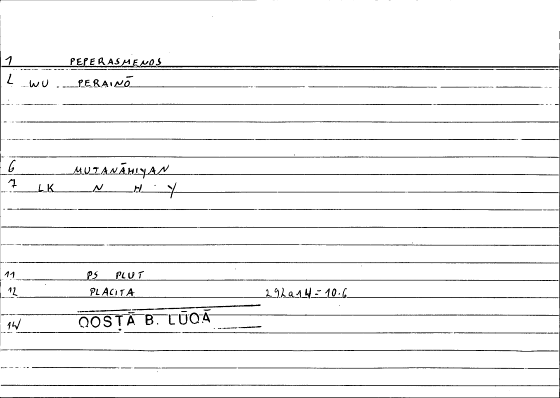 1 PEPERASMENOS
L WU PERAINŌ
6 MUTANĀHIYAN
7 LK N H Y
11 PS PLUT
12 PLACITA 292a14=10.6
14 QOSṬĀ B. LŪQĀ